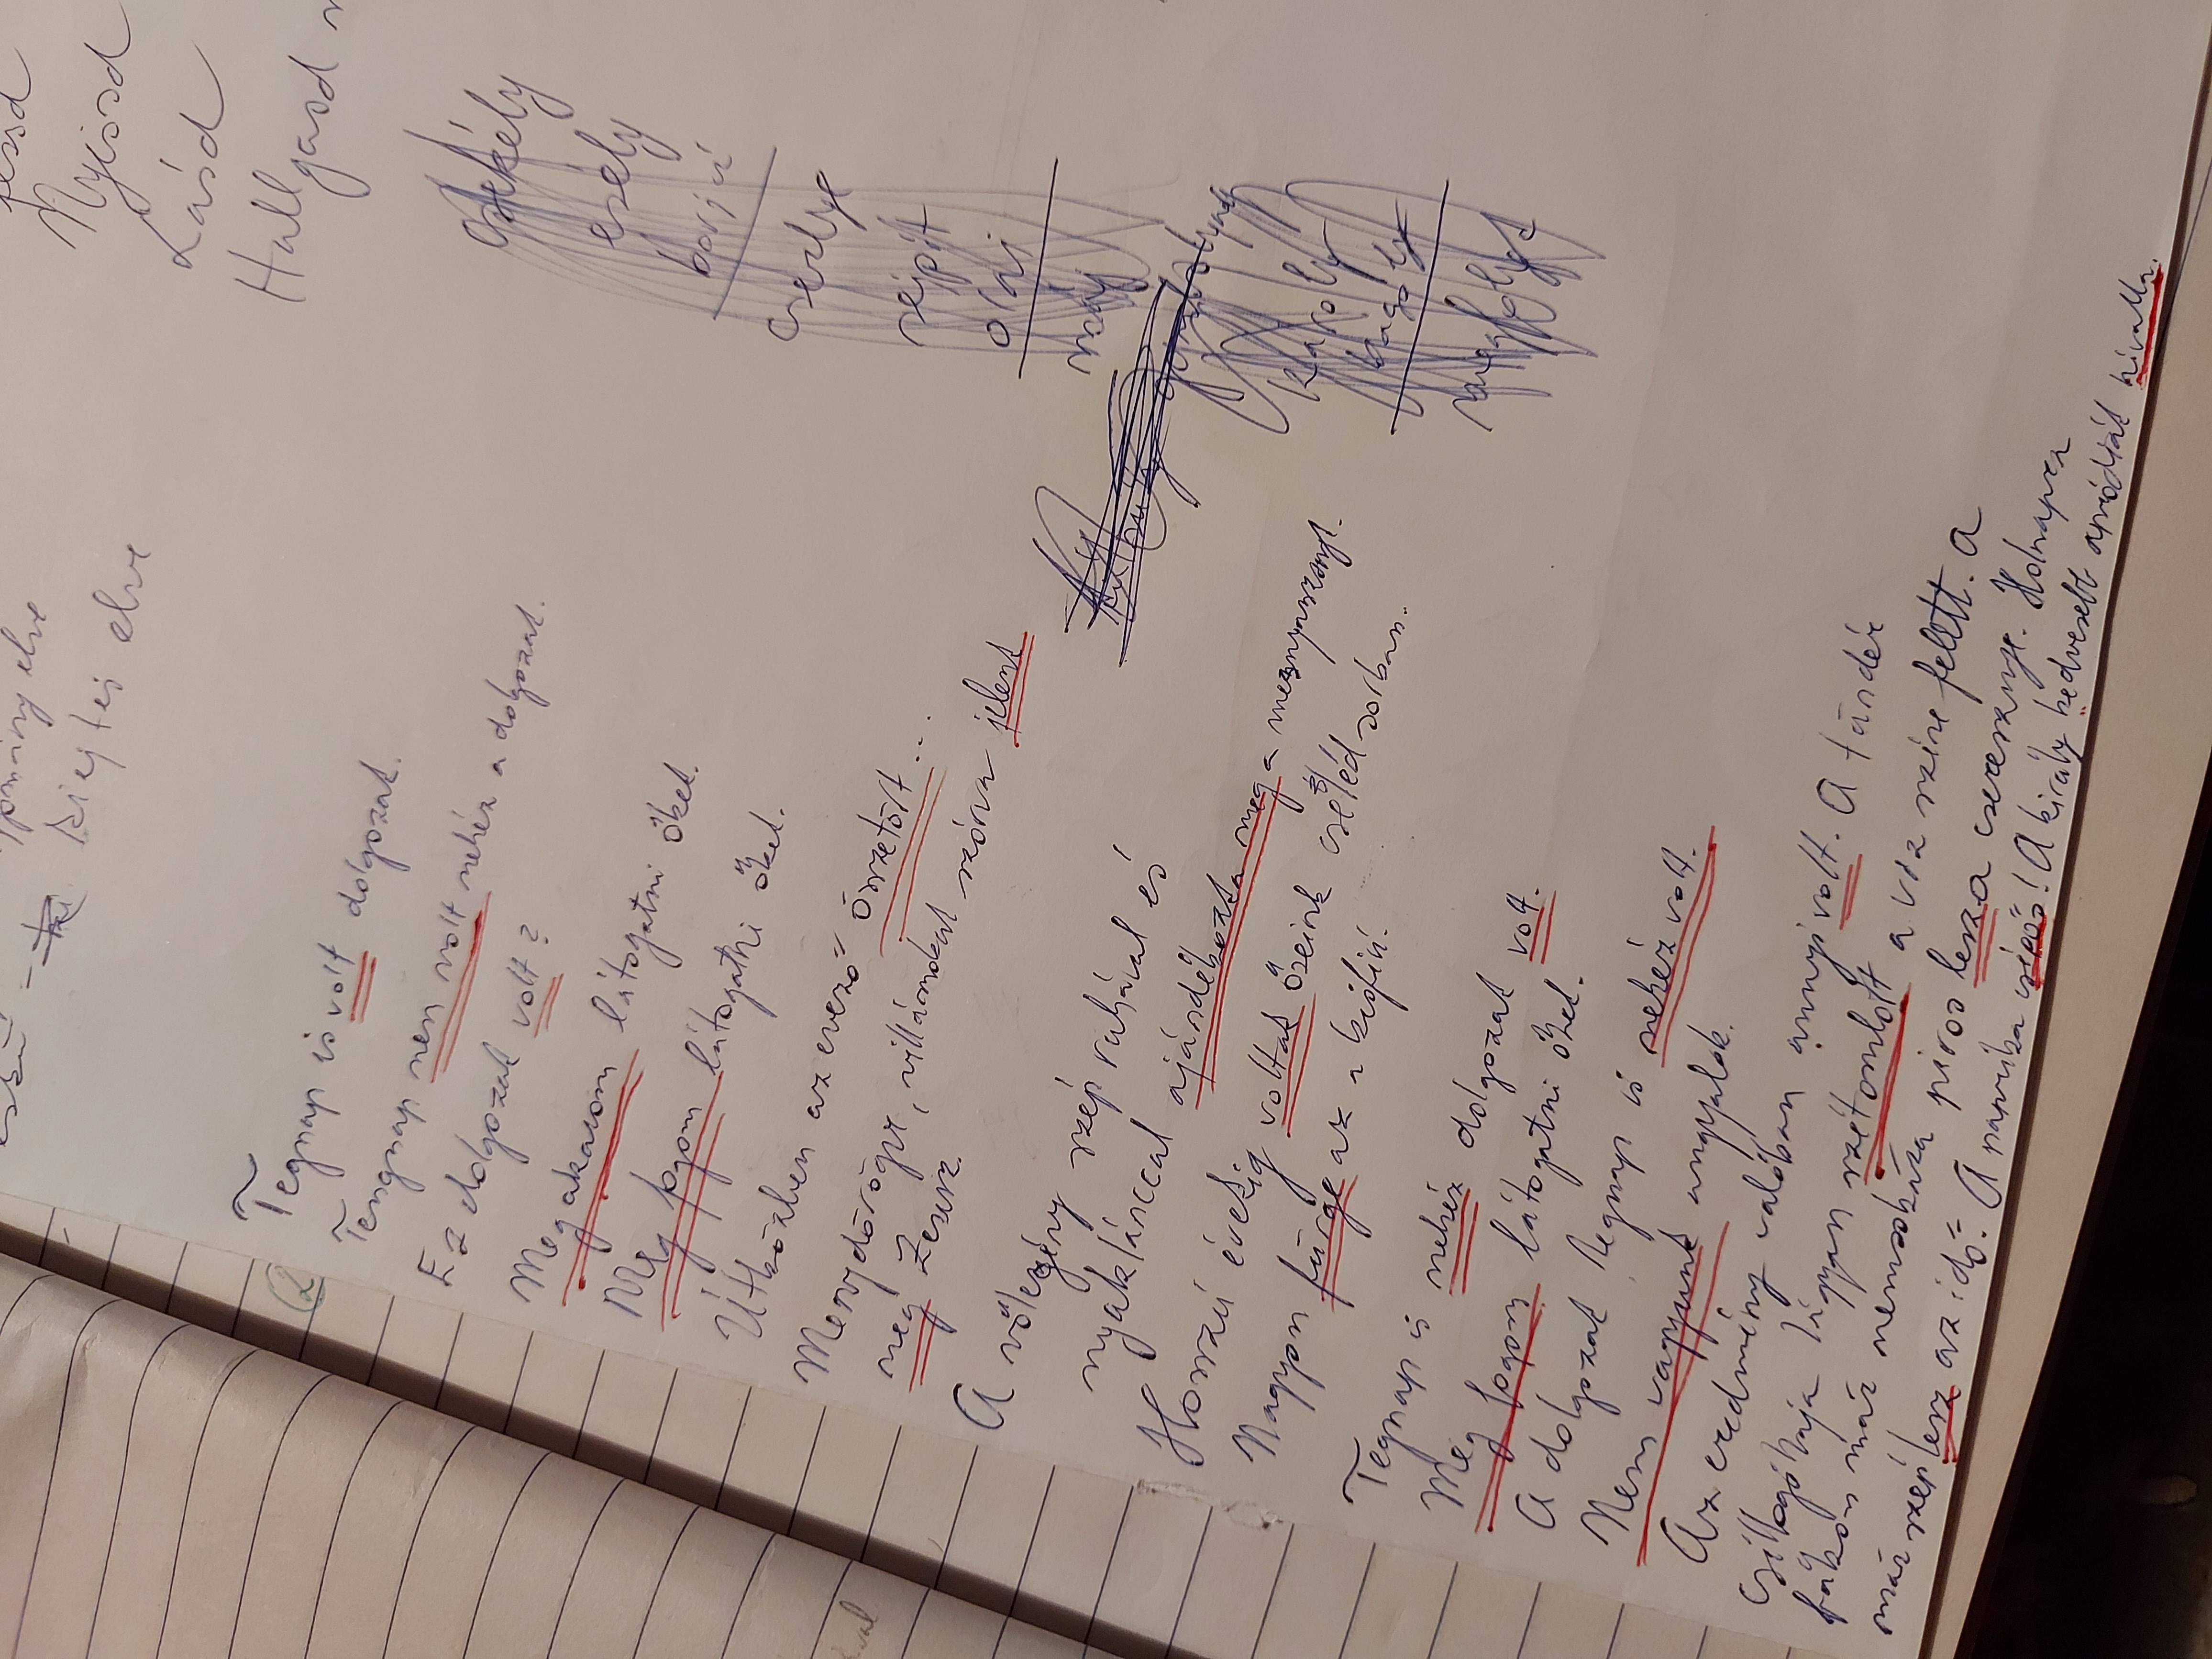 Nyissd
Lásd
Hallgasd
elve
kiejtés elve
Tegnap is volt dolgozat.
Tengnap nem volt nehéz a dolgozat.
Ez dolgozat volt?
Meg akarom látogatni őket.
Meg fogom látogatni őket.
Útközben az evező összetört...
Mennydörögve, villámokat szórva jelent
meg Zeusz.
A vőlegény szép ruhával és
nyaklánccal ajándékozta meg a menyasszonyt.
Hosszú évekig voltak őseink cseléd sorban.
Nagyon fürge az a kisfiú.
Tegnap is nehéz dolgozat volt.
Meg fogom látogatni őket.
A dolgozat tegnap is nehéz volt.
Nem vagyunk angyalok.
Az eredmény valóban annyi volt. A tündér
csillogó haja lágyan szétomlott a víz színe felett. A
fákon már nemsokára piros lesz a cseresznye. Holnapra
már szép lesz az idő. A paprika csípős! A király kedvesét apródját hívatta.
csekély
esély
bojú
cserlye
séjpít
ölni
máj
Károly
bagoly
megfolyt